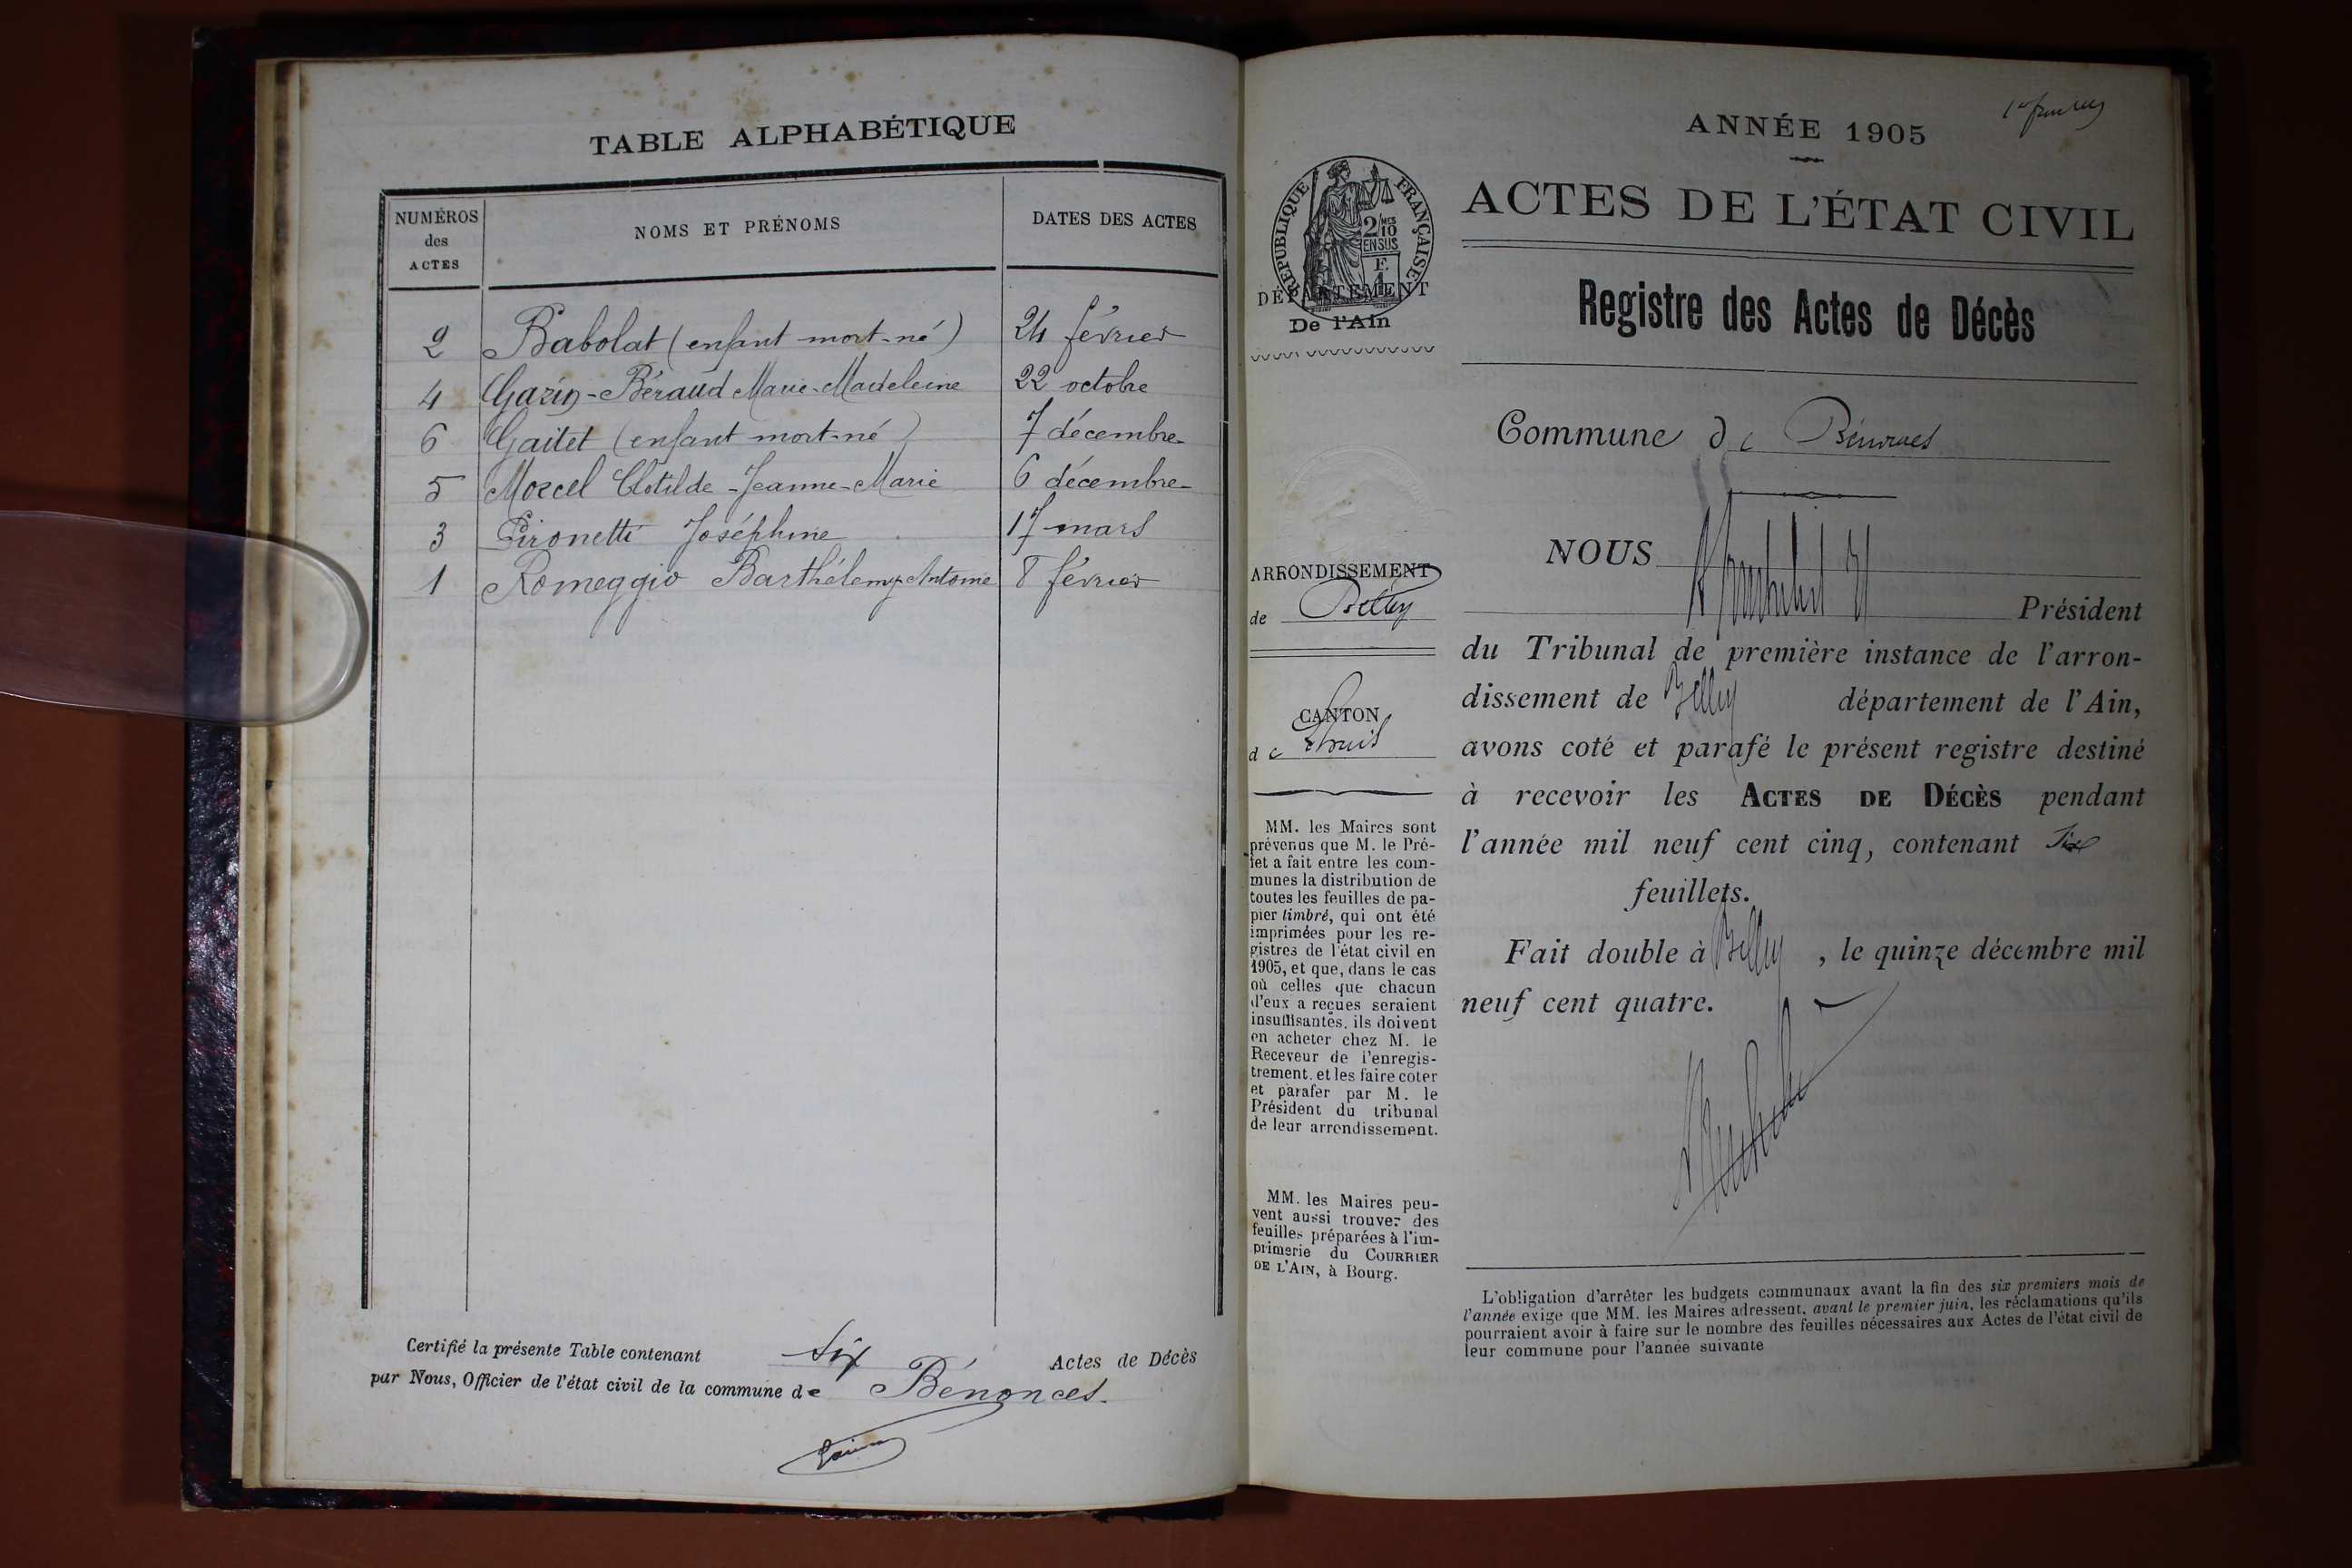 TABLE ALPHABÉTIQUE
NUMÉROS
des
ACTES
NOMS ET PRÉNOMS
DATES DES ACTES
2 Babolat (enfant mort-né) 24 février
4 Garin-Béraud Marie-Madeleine 22 octobre
6 Gaitet (enfant mort-né) 7 décembre
5 Morcel Clotilde-Jeanne-Marie 6 décembre
3 Pironetti Joséphine 17 mars
1 Romeggio Barthélemy Antoine 8 février
Certifié la présente Table contenant six Actes de Décès
par Nous, Officier de l'état civil de la commune de Bénonces.
1er feuillet
ANNÉE 1905
RÉPUBLIQUE FRANÇAISE
2/10
MES
EN SUS
F.
1
DÉPARTEMENT
De l'Ain
ACTES DE L'ÉTAT CIVIL
Registre des Actes de Décès
Commune de Bénonces
ARRONDISSEMENT
de Belley
CANTON
de Lhuis
MM. les Maires sont
prévenus que M. le Pré-
fet a fait entre les com-
munes la distribution de
toutes les feuilles de pa-
pier timbré, qui ont été
imprimées pour les re-
gistres de l'état civil en
1905, et que, dans le cas
où celles que chacun
d'eux a reçues seraient
insuffisantes, ils doivent
en acheter chez M. le
Receveur de l'enregis-
trement, et les faire coter
et parafer par M. le
Président du tribunal
de leur arrondissement.
MM. les Maires peu-
vent aussi trouver des
feuilles préparées à l'im-
primerie du COURRIER
DE L'AIN, à Bourg.
NOUS
Président
du Tribunal de première instance de l'arron-
dissement de Belley département de l'Ain,
avons coté et parafé le présent registre destiné
à recevoir les ACTES DE DÉCÈS pendant
l'année mil neuf cent cinq, contenant six
feuillets.
Fait double à Belley, le quinze décembre mil
neuf cent quatre.
L'obligation d'arrêter les budgets communaux avant la fin des six premiers mois de
l'année exige que MM. les Maires adressent, avant le premier juin, les réclamations qu'ils
pourraient avoir à faire sur le nombre des feuilles nécessaires aux Actes de l'état civil de
leur commune pour l'année suivante